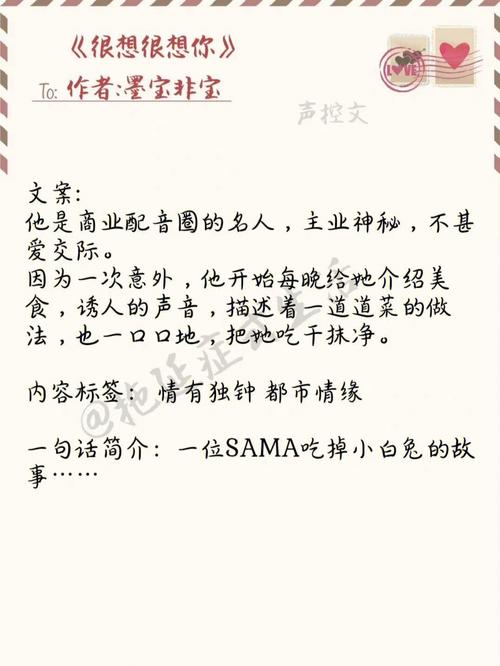 《很想很想你》
To: 作者:墨宝非宝
LOVE
声控文
文案:
他是商业配音圈的名人，主业神秘，不甚
爱交际。
因为一次意外，他开始每晚给她介绍美
食，诱人的声音，描述着一道道菜的做
法，也一口口地，把她吃干抹净。
内容标签： 情有独钟 都市情缘
一句话简介：一位SAMA吃掉小白兔的故
事……
@拖延症及生活